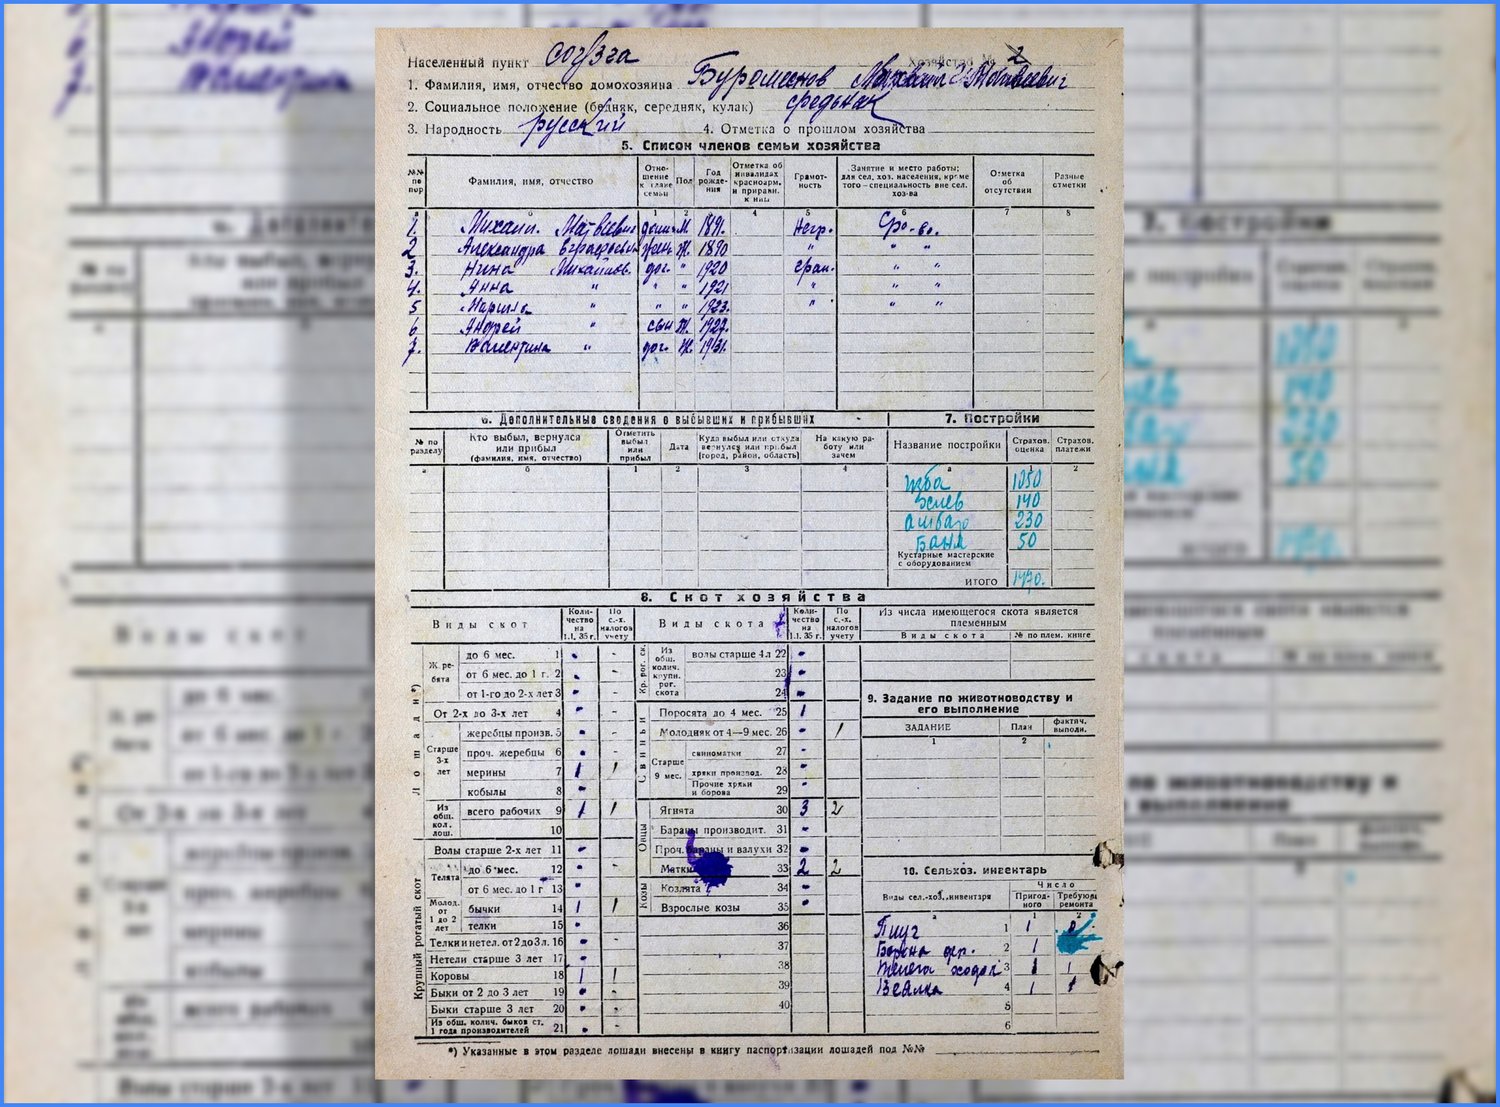 Населенный пункт согузга Хозяйство № 2
1. Фамилия, имя, отчество домохозяина Матвеевич
2. Социальное положение (бедняк, середняк, кулак) средняк
3. Народность русский 4. Отметка о прошлом хозяйства
5. Список членов семьи хозяйства
№№ по пор Фамилия, имя, отчество Отношение к главе семьи Пол Год рождения Отметка об инвалидах красноарм. и приравн. к ним Грамотность Занятие и место работы; для сел. хоз. населения, кроме того—специальность вне сел. хоз-ва Отметка об отсутствии Разные отметки
а б 1 2 4 5 6 7 8
1. Михаил. Матвеевич М 1891. Негр.
2 Александра жена Ж. 1890 " " "
3. Нина Михайлов. доч. " 1920 " "
4. Анна " " " 1921 " " "
5 " " " 1923. " " "
6 Андрей " сын 1927.
7. Валентина " доч. Ж. 1931.
6. Дополнительные сведения о выбывших и прибывших 7. Постройки
№ по разделу Кто выбыл, вернулся или прибыл (фамилия, имя, отчество) Отметить выбыл или прибыл Дата Куда выбыл или откуда вернулся или прибыл (город, район, область) На какую работу или зачем Название постройки Страхов. оценка Страхов. платежи
а б 1 2 3 4 а 1 2
изба 1050
хлев 140
амбар 230
Баня 50
Кустарные мастерские с оборудованием
итого 1470.
8. Скот хозяйства
Виды скот Количество на 1.1. 35 г. По с.-х. налогов учету Виды скота Количество на 1.1. 35 г. По с.-х. налогов учету Из числа имеющегося скота является племенным
Виды скота № по плем. книге
Лошади *)
Жеребята
до 6 мес. 1 -
от 6 мес. до 1 г. 2 -
от 1-го до 2-х лет 3 -
От 2-х до 3-х лет 4 -
Старше 3-х лет
жеребцы произв. 5 -
проч. жеребцы 6 -
мерины 7 1 1
кобылы 8
Из общ. кол. лош.
всего рабочих 9 1 1
10
Крупный рогатый скот
Волы старше 2-х лет 11
Телята
до 6 мес. 12
от 6 мес. до 1 г 13
Молод. от 1 до 2 лет
бычки 14 1 1
телки 15
Телки и нетел. от 2 до 3 л. 16
Нетели старше 3 лет 17
Коровы 18 1 1
Быки от 2 до 3 лет 19
Быки старше 3 лет 20
Из общ. колич. быков ст. 1 года производителей 21
Кр. рог. ск.
Из общ. колич. крупн. рог. скота
волы старше 4 л 22
23
24
Свиньи
Поросята до 4 мес. 25 1
Молодняк от 4—9 мес. 26 1
Старше 9 мес.
свиноматки 27
хряки производ. 28
Прочие хряки и борова 29
Овцы
Ягнята 30 3 2
Бараны производит. 31
Проч. бараны и валухи 32
Матки 33 2 2
Козы
Козлята 34
Взрослые козы 35
36
37
38
39
40
9. Задание по животноводству и его выполнение
ЗАДАНИЕ План фактич. выполн.
1 2
10. Сельхоз. инвентарь
Виды сел.-хоз. инвентаря Число
Пригодного Требующ. ремонта
а 1 2
Плуг 1 1
Борона 2 1
Телега 3 1 1
Веялка 4 1 1
5
6
*) Указанные в этом разделе лошади внесены в книгу паспортизации лошадей под №№